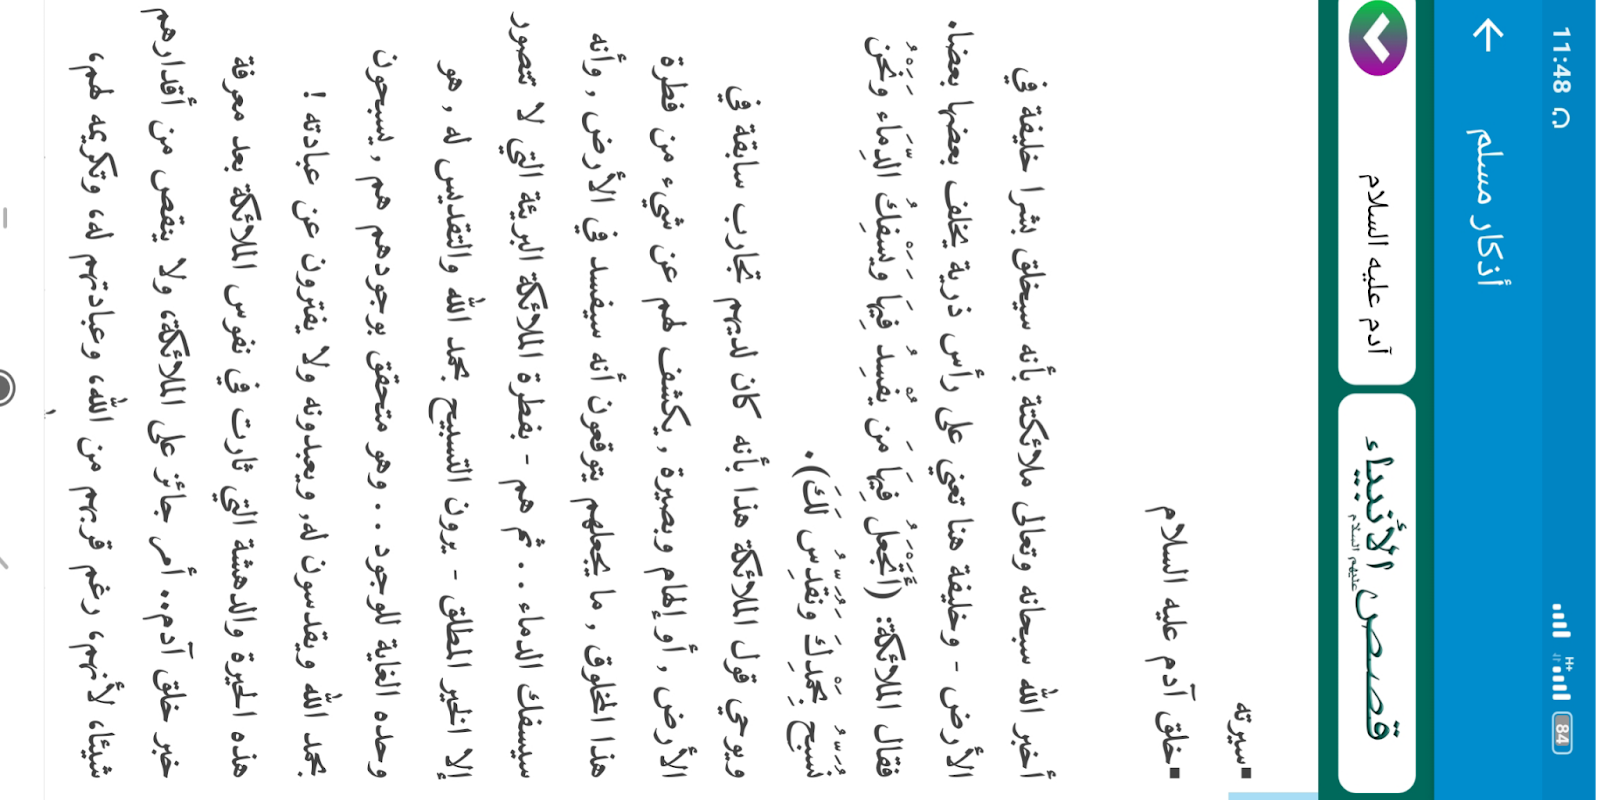 11:48
H+
84
أذكار مسلم
قصص الأنبياء
عليهم السلام
آدم عليه السلام
▪سيرته
▪خلق آدم عليه السلام
أخبر الله سبحانه وتعالى ملائكته بأنه سيخلق بشرا خليفة في
الأرض - وخليفة هنا تعني على رأس ذرية يخلف بعضها بعضا.
فقال الملائكة: (أَتَجْعَلُ فِيهَا مَن يُفْسِدُ فِيهَا وَيَسْفِكُ الدِّمَاء وَنَحْنُ
نُسَبِّحُ بِحَمْدِكَ وَنُقَدِّسُ لَكَ).
ويوحي قول الملائكة هذا بأنه كان لديهم تجارب سابقة في
الأرض , أو إلهام وبصيرة , يكشف لهم عن شيء من فطرة
هذا المخلوق , ما يجعلهم يتوقعون أنه سيفسد في الأرض , وأنه
سيسفك الدماء . . ثم هم - بفطرة الملائكة البريئة التي لا تتصور
إلا الخير المطلق - يرون التسبيح بحمد الله والتقديس له , هو
وحده الغاية للوجود . . وهو متحقق بوجودهم هم , يسبحون
بحمد الله ويقدسون له, ويعبدونه ولا يفترون عن عبادته !
هذه الحيرة والدهشة التي ثارت في نفوس الملائكة بعد معرفة
خبر خلق آدم.. أمر جائز على الملائكة، ولا ينقص من أقدارهم
شيئا، لأنهم، رغم قربهم من الله، وعبادتهم له، وتكريمه لهم،